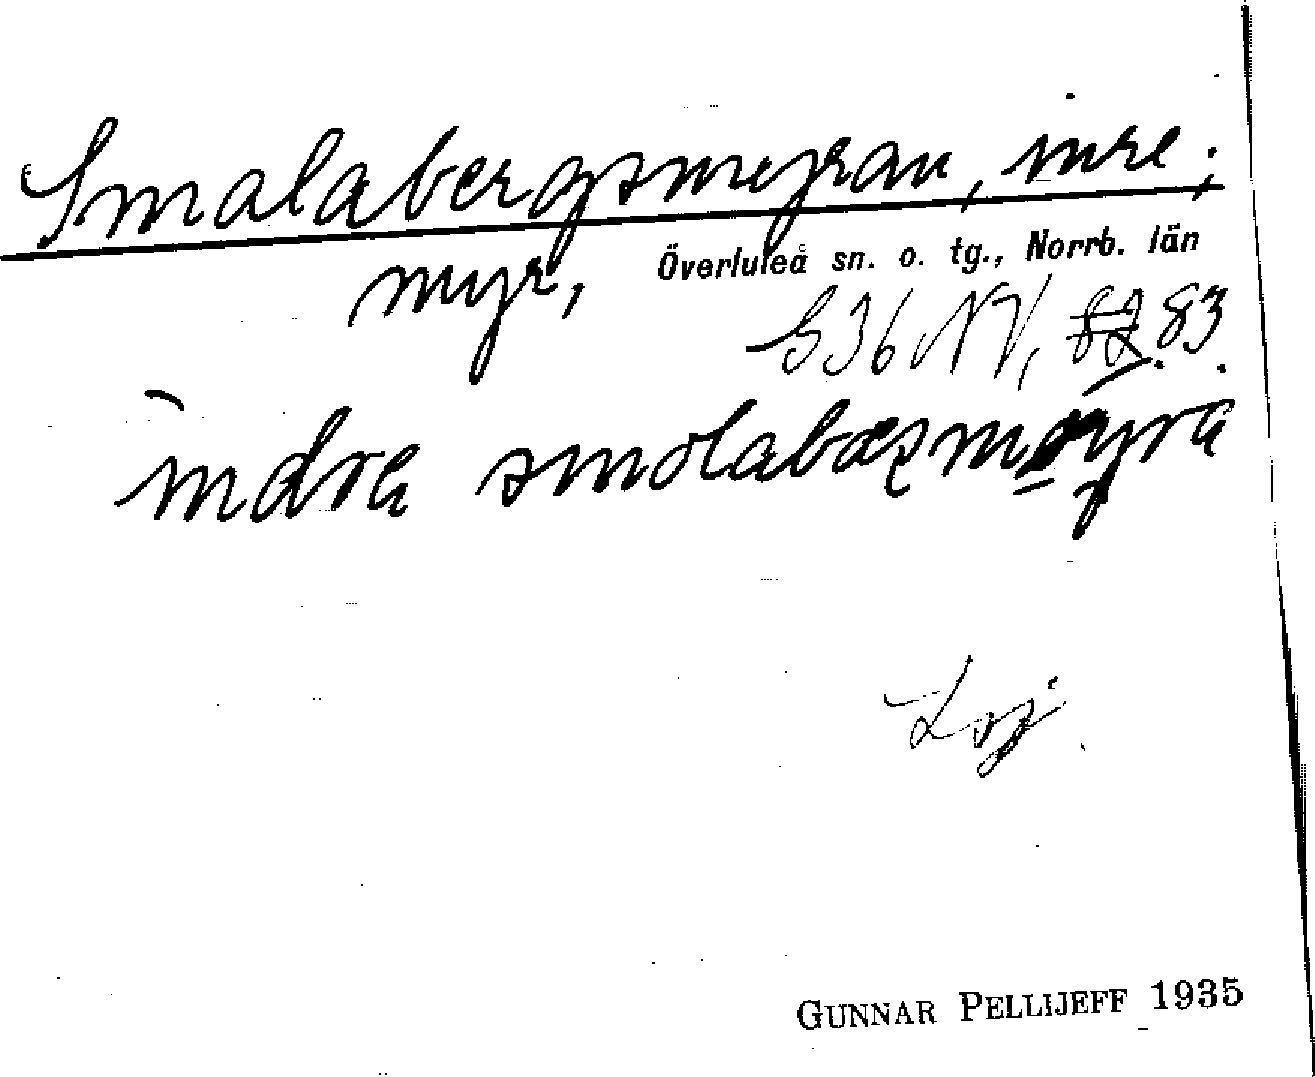 Smalabergsmyran, inre;
myr, Överluleå sn. o. tg., Norrb. län
S36 NV, 83.
ìndra smolabæsmýra
GUNNAR PELLIJEFF 1935